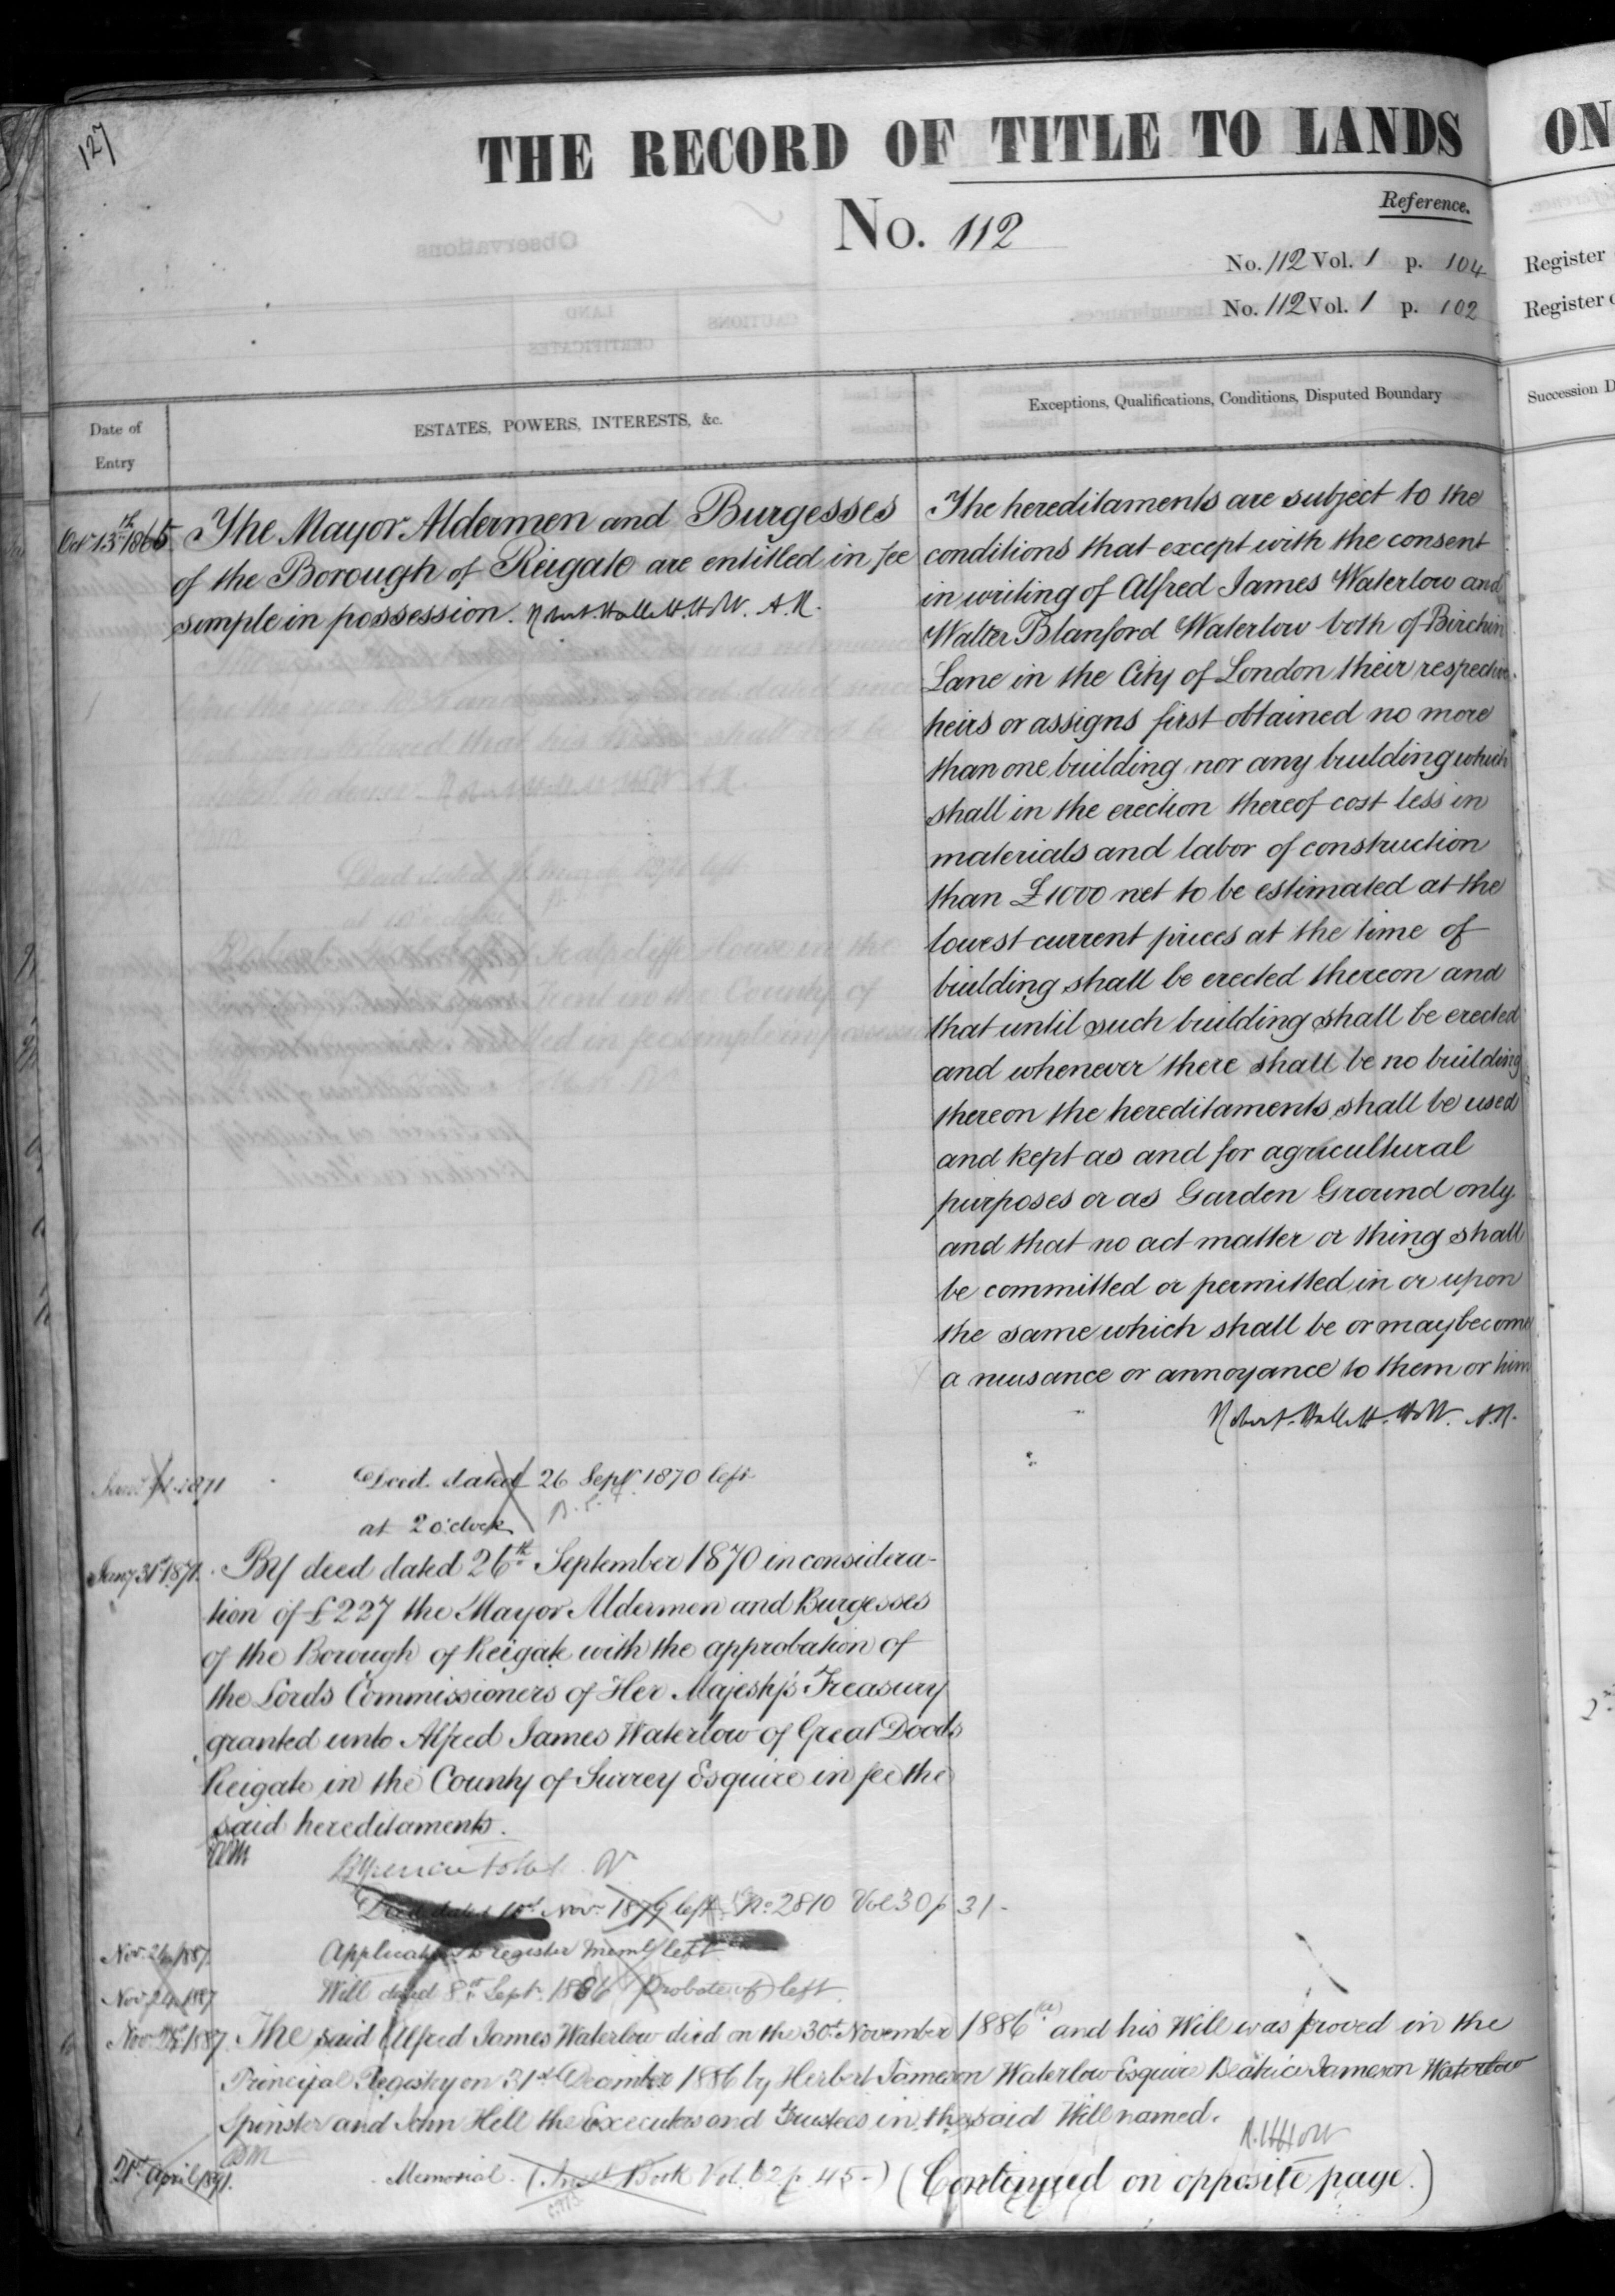 127
THE RECORD OF TITLE TO LANDS
ON
No. 112
Reference.
No. 112 Vol. 1 p. 104
Register
No. 112 Vol. 1 p. 102
Register
Date of
Entry
ESTATES, POWERS, INTERESTS, &c.
Exceptions, Qualifications, Conditions, Disputed Boundary
Succession D
Oct 13th 1865
The Mayor Aldermen and Burgesses
of the Borough of Reigate are entitled in fee
simple in possession. Robert Hallett. H.W. A.R.
The hereditaments are subject to the
conditions that except with the consent
in writing of Alfred James Waterlow and
Walter Blanford Waterlow both of Birchin
Lane in the City of London their respective
heirs or assigns first obtained no more
than one building nor any building which
shall in the erection thereof cost less in
materials and labor of construction
than £1000 net to be estimated at the
lowest current prices at the time of
building shall be erected thereon and
that until such building shall be erected
and whenever there shall be no building
thereon the hereditaments shall be used
and kept as and for agricultural
purposes or as Garden Ground only
and that no act matter or thing shall
be committed or permitted in or upon
the same which shall be or may become
a nuisance or annoyance to them or him
Robert Hallett. H.W. A.R.
1871
Deed dated 26 Sept 1870 left
at 2 o'clock
Jany 31st 1871.
By deed dated 26th September 1870 in considera-
tion of £227 the Mayor Aldermen and Burgesses
of the Borough of Reigate with the approbation of
the Lords Commissioners of Her Majesty's Treasury
granted unto Alfred James Waterlow of Great Doods
Reigate in the County of Surrey Esquire in fee the
said hereditaments.
Deed dated Nov 1879 left No 2810 Vol 30 p 31.
Nov. 1887
Application to register left
Nov 1887
Will dated 8th Sept. 1886 (Probate of) left.
Nov 1887
The said Alfred James Waterlow died on the 30th November 1886 and his Will was proved in the
Principal Registry on 31st December 1886 by Herbert Jameson Waterlow Esquire Beatrice Jameson Waterlow
Spinster and John Hell the Executors and Trustees in the said Will named.
21st April 1891.
Memorial (Inst Book Vol. 62 p. 45.) (Continued on opposite page.)